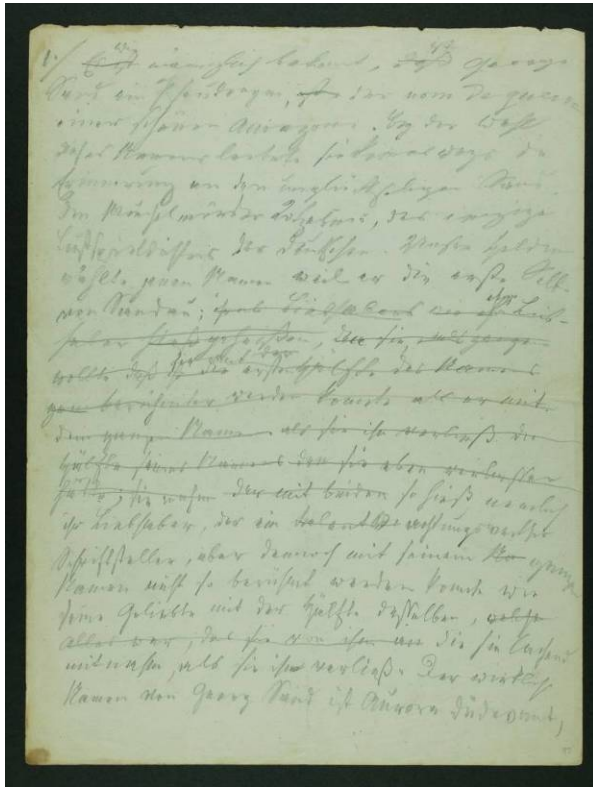 1./ männiglich bekannt, daß George
Sand ein Pseudonym, der nom de guerre
einer schönen Amazone. Bey der Wahl
dieses Namens leitete sie keineswegs die
Erinnerung an den unglückseligen Sand,
den Meuchelmörder Kotzebues, des einzigen
Lustspieldichters der Deutschen. Unsre Heldin
wählte jenen Namen weil er die erste Silbe
von Sandeau; ihr Lieb-
haber geheißen, sie
wollte daß die erste Hälfte des Namens
berühmter werden konnte als er mit
dem ganzen Namen als sie ihn verließ die
Hälfte seines Namens den sie eben
sie nahm so hieß nemlich
ihr Liebhaber, der ein achtungswerther
Schriftsteller, aber dennoch mit seinem ganzen
Namen nicht so berühmt werden konnte wie
seine Geliebte mit der Hälfte desselben, welche
alles war, das sie von ihm die sie lachend
mitnahm, als sie ihn verließ. Der wirkliche
Namen von Georg Sand ist Aurora Düdevant,